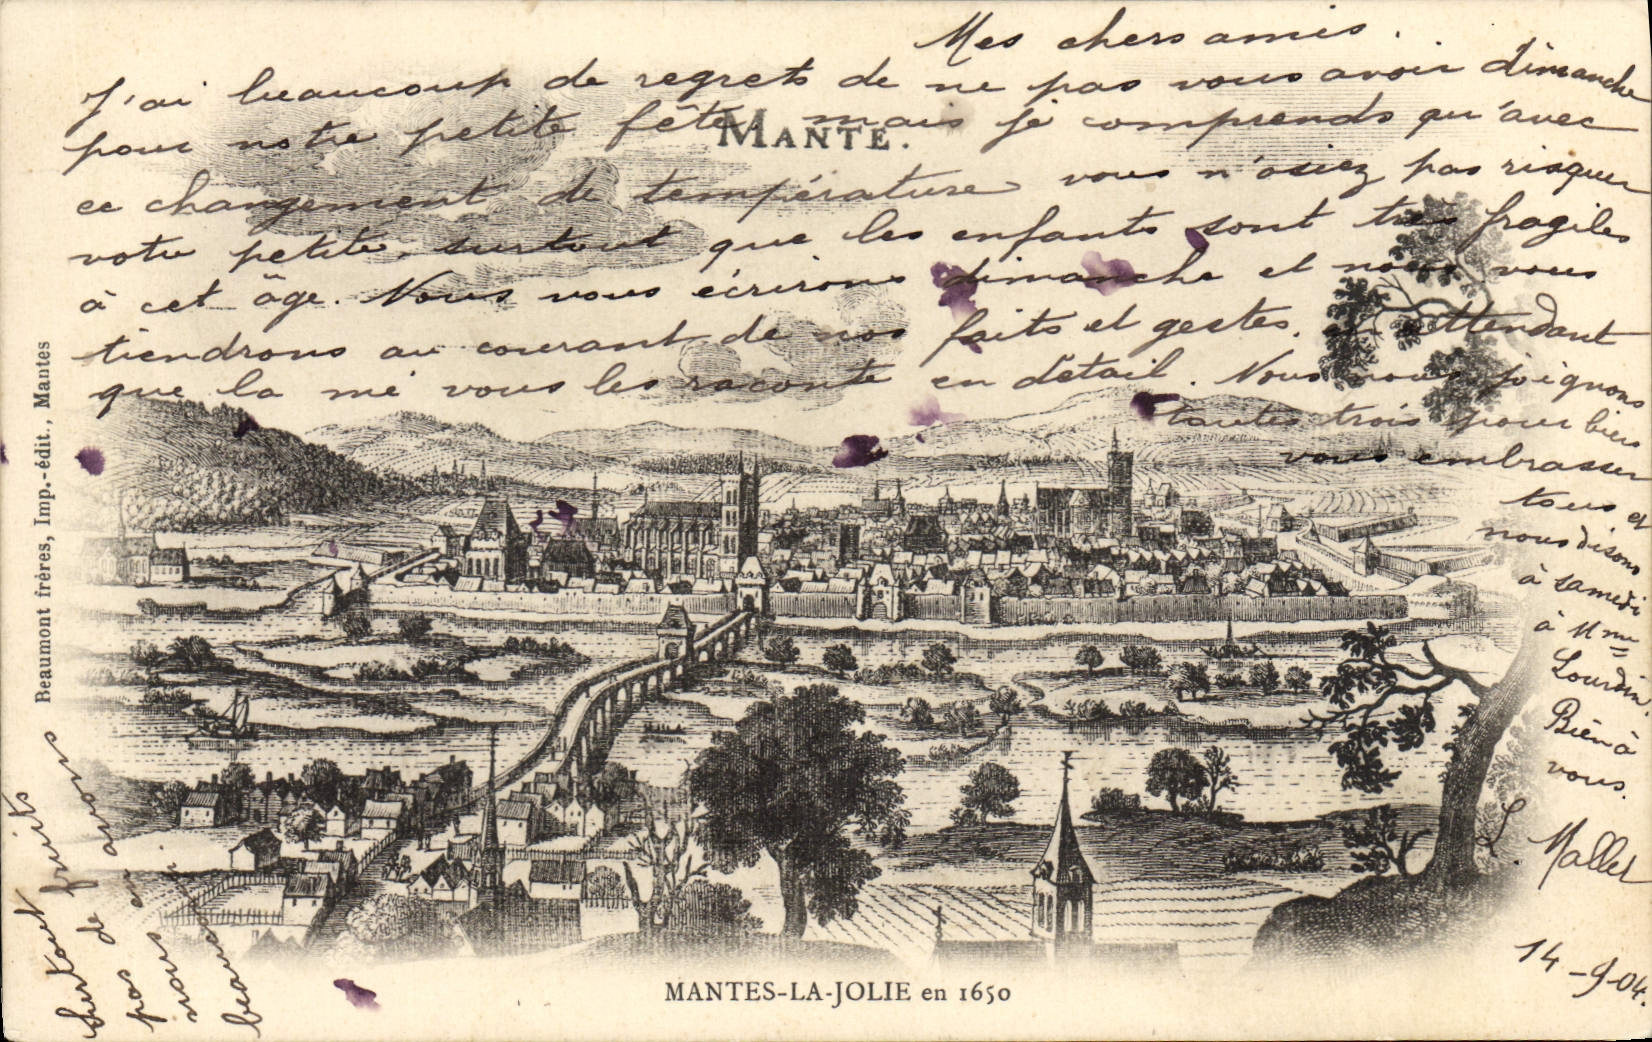 Mes chers amis.
J'ai beaucoup de regrets de ne pas vous avoir dimanche
pour notre petite fête, mais je comprends qu'avec
MANTE.
ce changement de température vous n'osiez pas risquer
votre petite, surtout que les enfants sont très fragiles
à cet âge. Nous vous écrirons dimanche et nous vous
tiendrons au courant de nos faits et gestes. en attendant
que la mé vous les raconte en détail. Nous nous joignons
toutes trois pour bien
vous embrasser
tous et
nous disons
à samedi
à Mme
Lourdin.
Bien à
vous.
L. Mallet
14-9-04.
Surtout fruits
pas de
nous en avons
beaucoup
Beaumont frères, Imp.-édit., Mantes
MANTES-LA-JOLIE en 1650